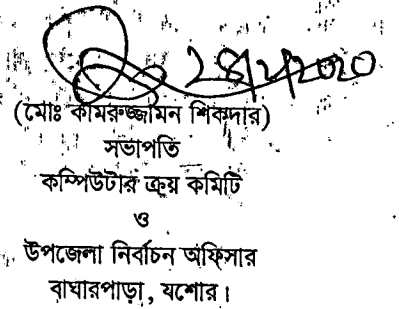 (মোঃ কামরুজ্জামন শিকদার)
সভাপতি
কম্পিউটার ক্রয় কমিটি
ও
উপজেলা নির্বাচন অফিসার
বাঘারপাড়া, যশোর।